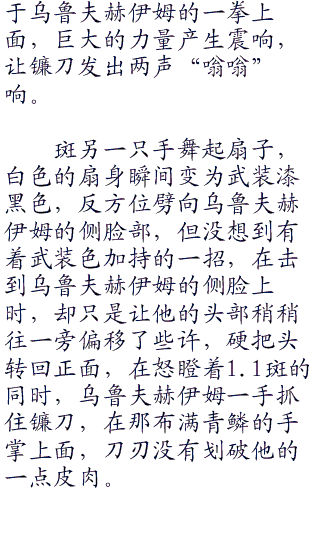 于乌鲁夫赫伊姆的一拳上
面，巨大的力量产生震响，
让镰刀发出两声“嗡嗡”
响。
斑另一只手舞起扇子，
白色的扇身瞬间变为武装漆
黑色，反方位劈向乌鲁夫赫
伊姆的侧脸部，但没想到有
着武装色加持的一招，在击
到乌鲁夫赫伊姆的侧脸上
时，却只是让他的头部稍稍
往一旁偏移了些许，硬把头
转回正面，在怒瞪着1.1斑的
同时，乌鲁夫赫伊姆一手抓
住镰刀，在那布满青鳞的手
掌上面，刀刃没有划破他的
一点皮肉。